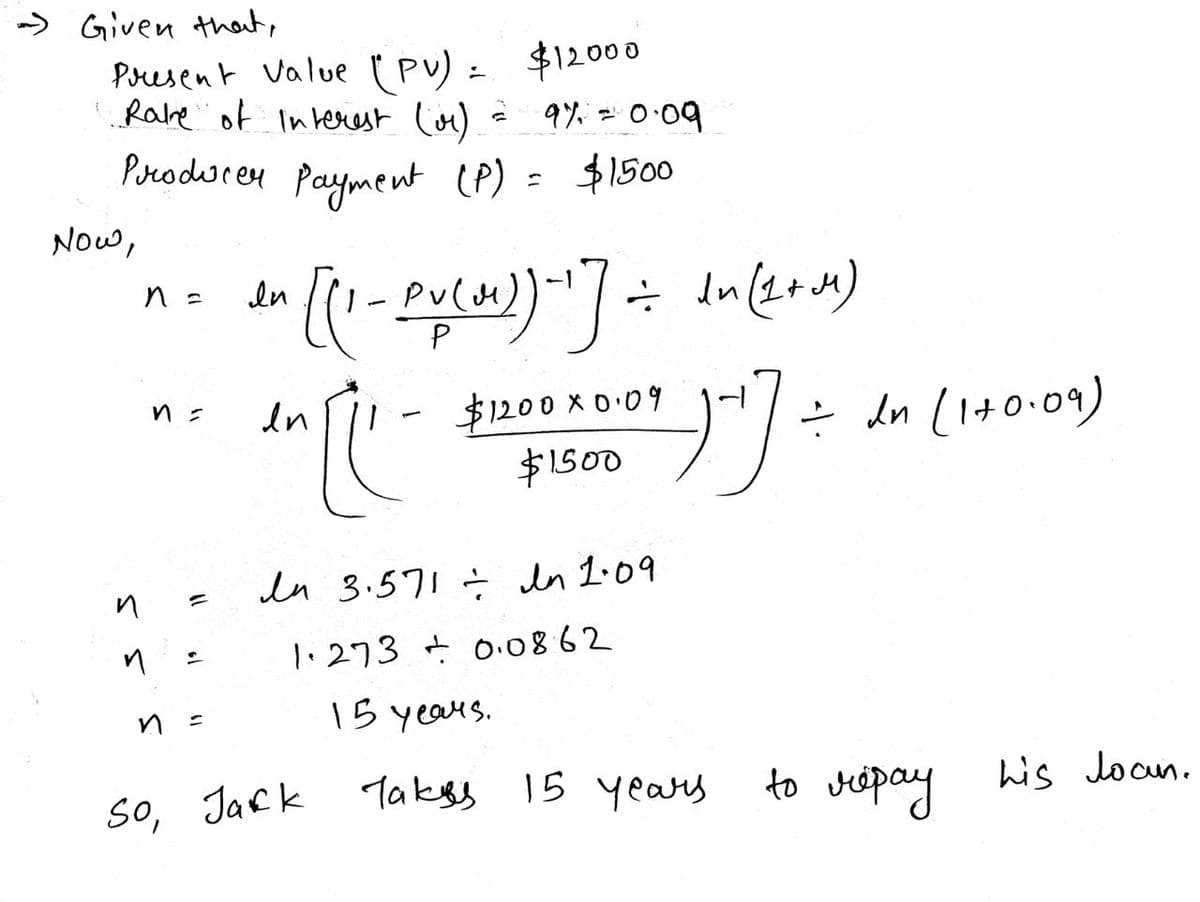 → Given that,
Present Value (PV) = $12000
Rate of Interest (r) = 9% = 0.09
Producer Payment (P) = $1500
Now,
n = ln [(1 - PV(r)/P)^-1] ÷ ln(1+r)
n = ln [(1 - $1200 × 0.09/$1500)^-1] ÷ ln (1+0.09)
n = ln 3.571 ÷ ln 1.09
n = 1.273 ÷ 0.0862
n = 15 years.
So, Jack Takes 15 years to repay his loan.